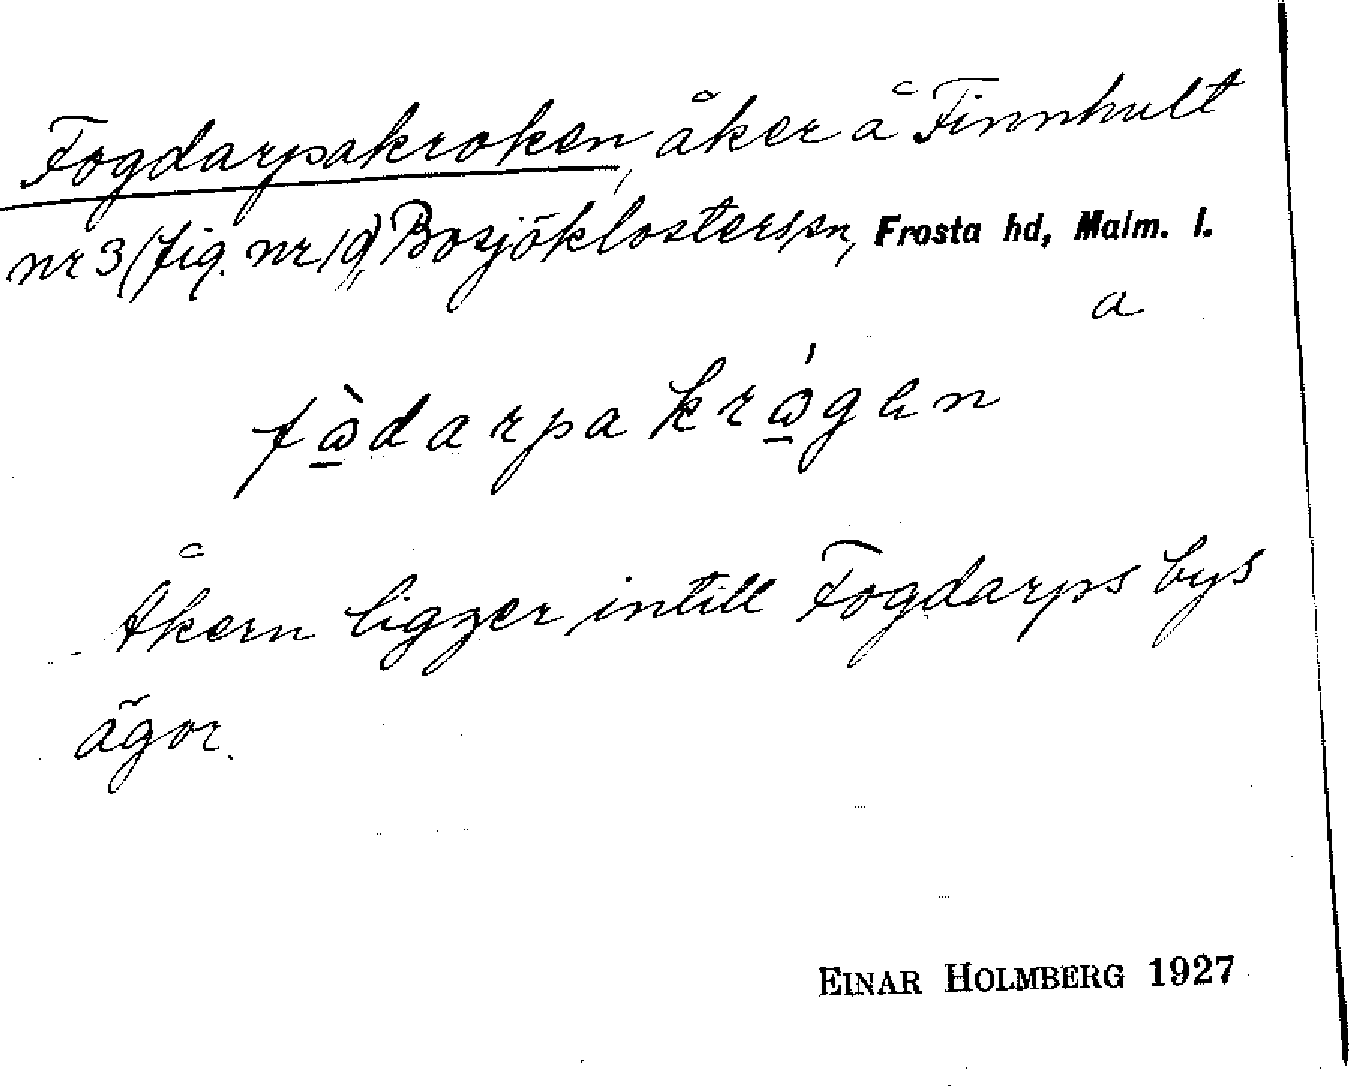 Fogdarpakroken, åker å Finnhult
nr 3 (fig. nr 19), Bosjökloster sn, Frosta hd, Malm. l.
a
fàdarpa krágan
Åkern ligger intill Fogdarps bys
ägor.
EINAR HOLMBERG 1927